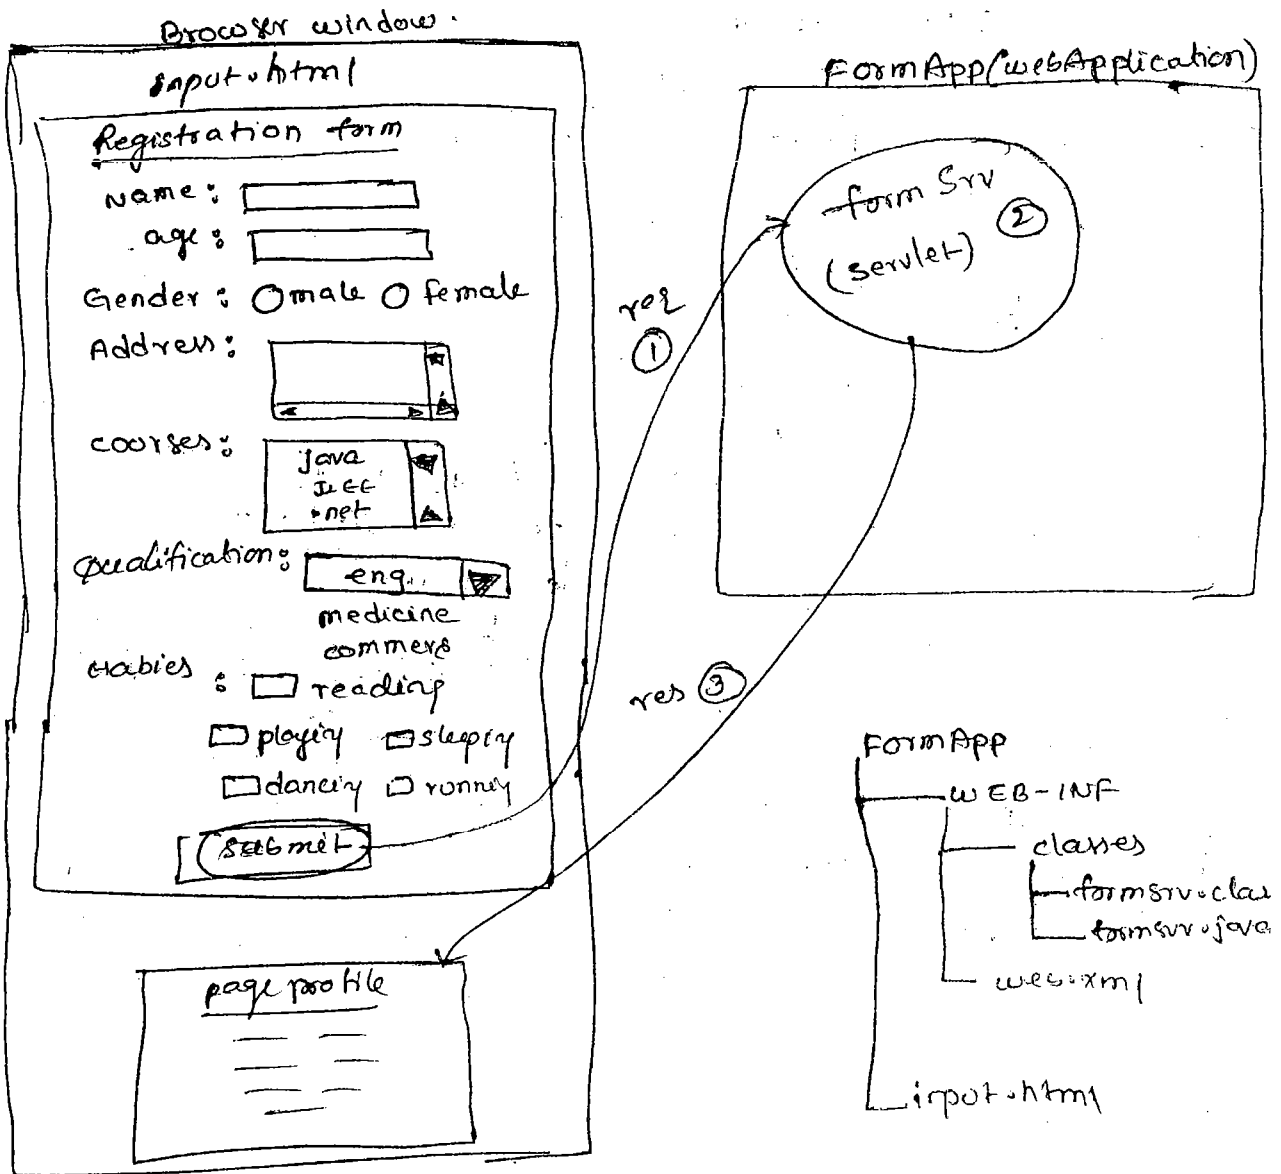 Browser window.
input.html
Registration form
name:
age:
Gender: male female
Address:
courses:
java
J2EE
.net
Qualification:
eng..
medicine
commers
Habies
: reading
playing sleeping
dancing running
submit
page profile
req
1
res 3
FormApp(webApplication)
form Srv
2
(servlet)
FormApp
WEB-INF
classes
formsrv.clas
formsrv.java
web.xml
input.html